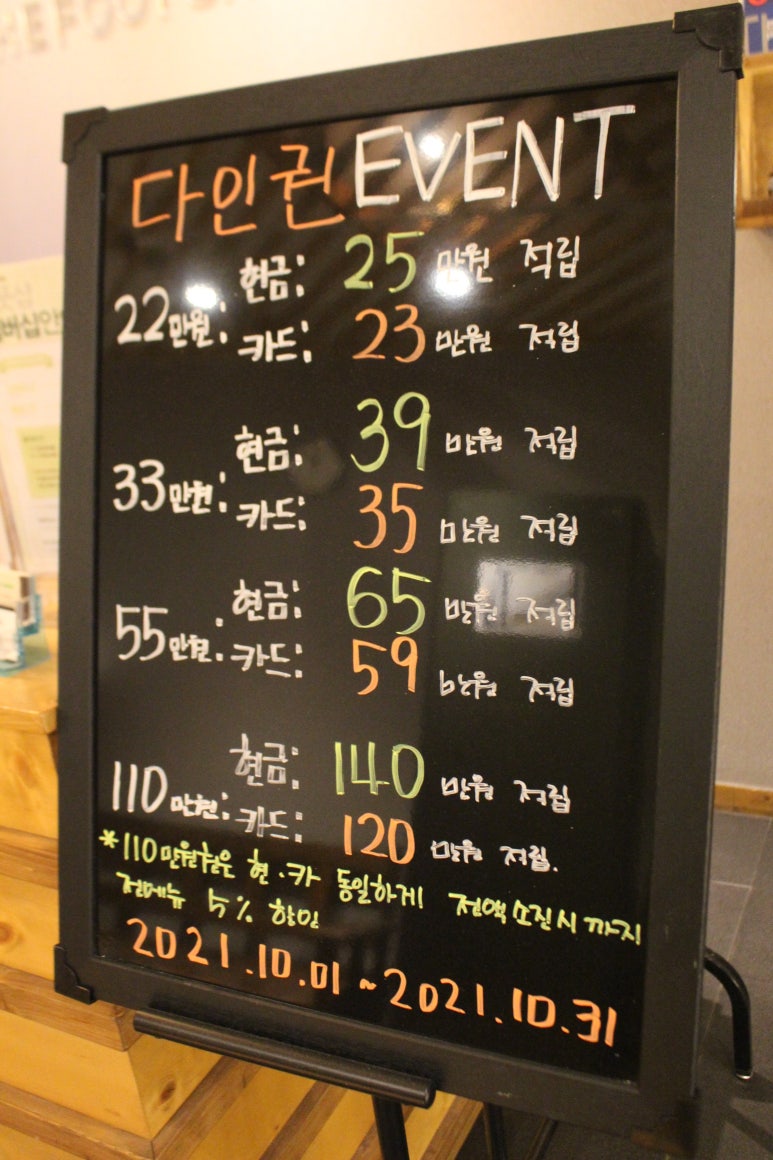 THE FOOT S
다인권 EVENT
22만원: 현금: 25만원 적립
카드: 23만원 적립
33만원: 현금: 39만원 적립
카드: 35만원 적립
55만원: 현금: 65만원 적립
카드: 59만원 적립
110만원: 현금: 140만원 적립
카드: 120만원 적립.
*110만원권은 현.카 동일하게 전액소진시까지
전메뉴 5% 할인
2021.10.01 ~ 2021.10.31
버십안